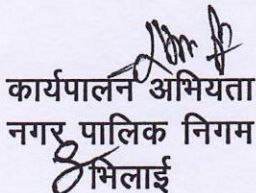 कार्यपालन अभियता
नगर पालिक निगम
भिलाई